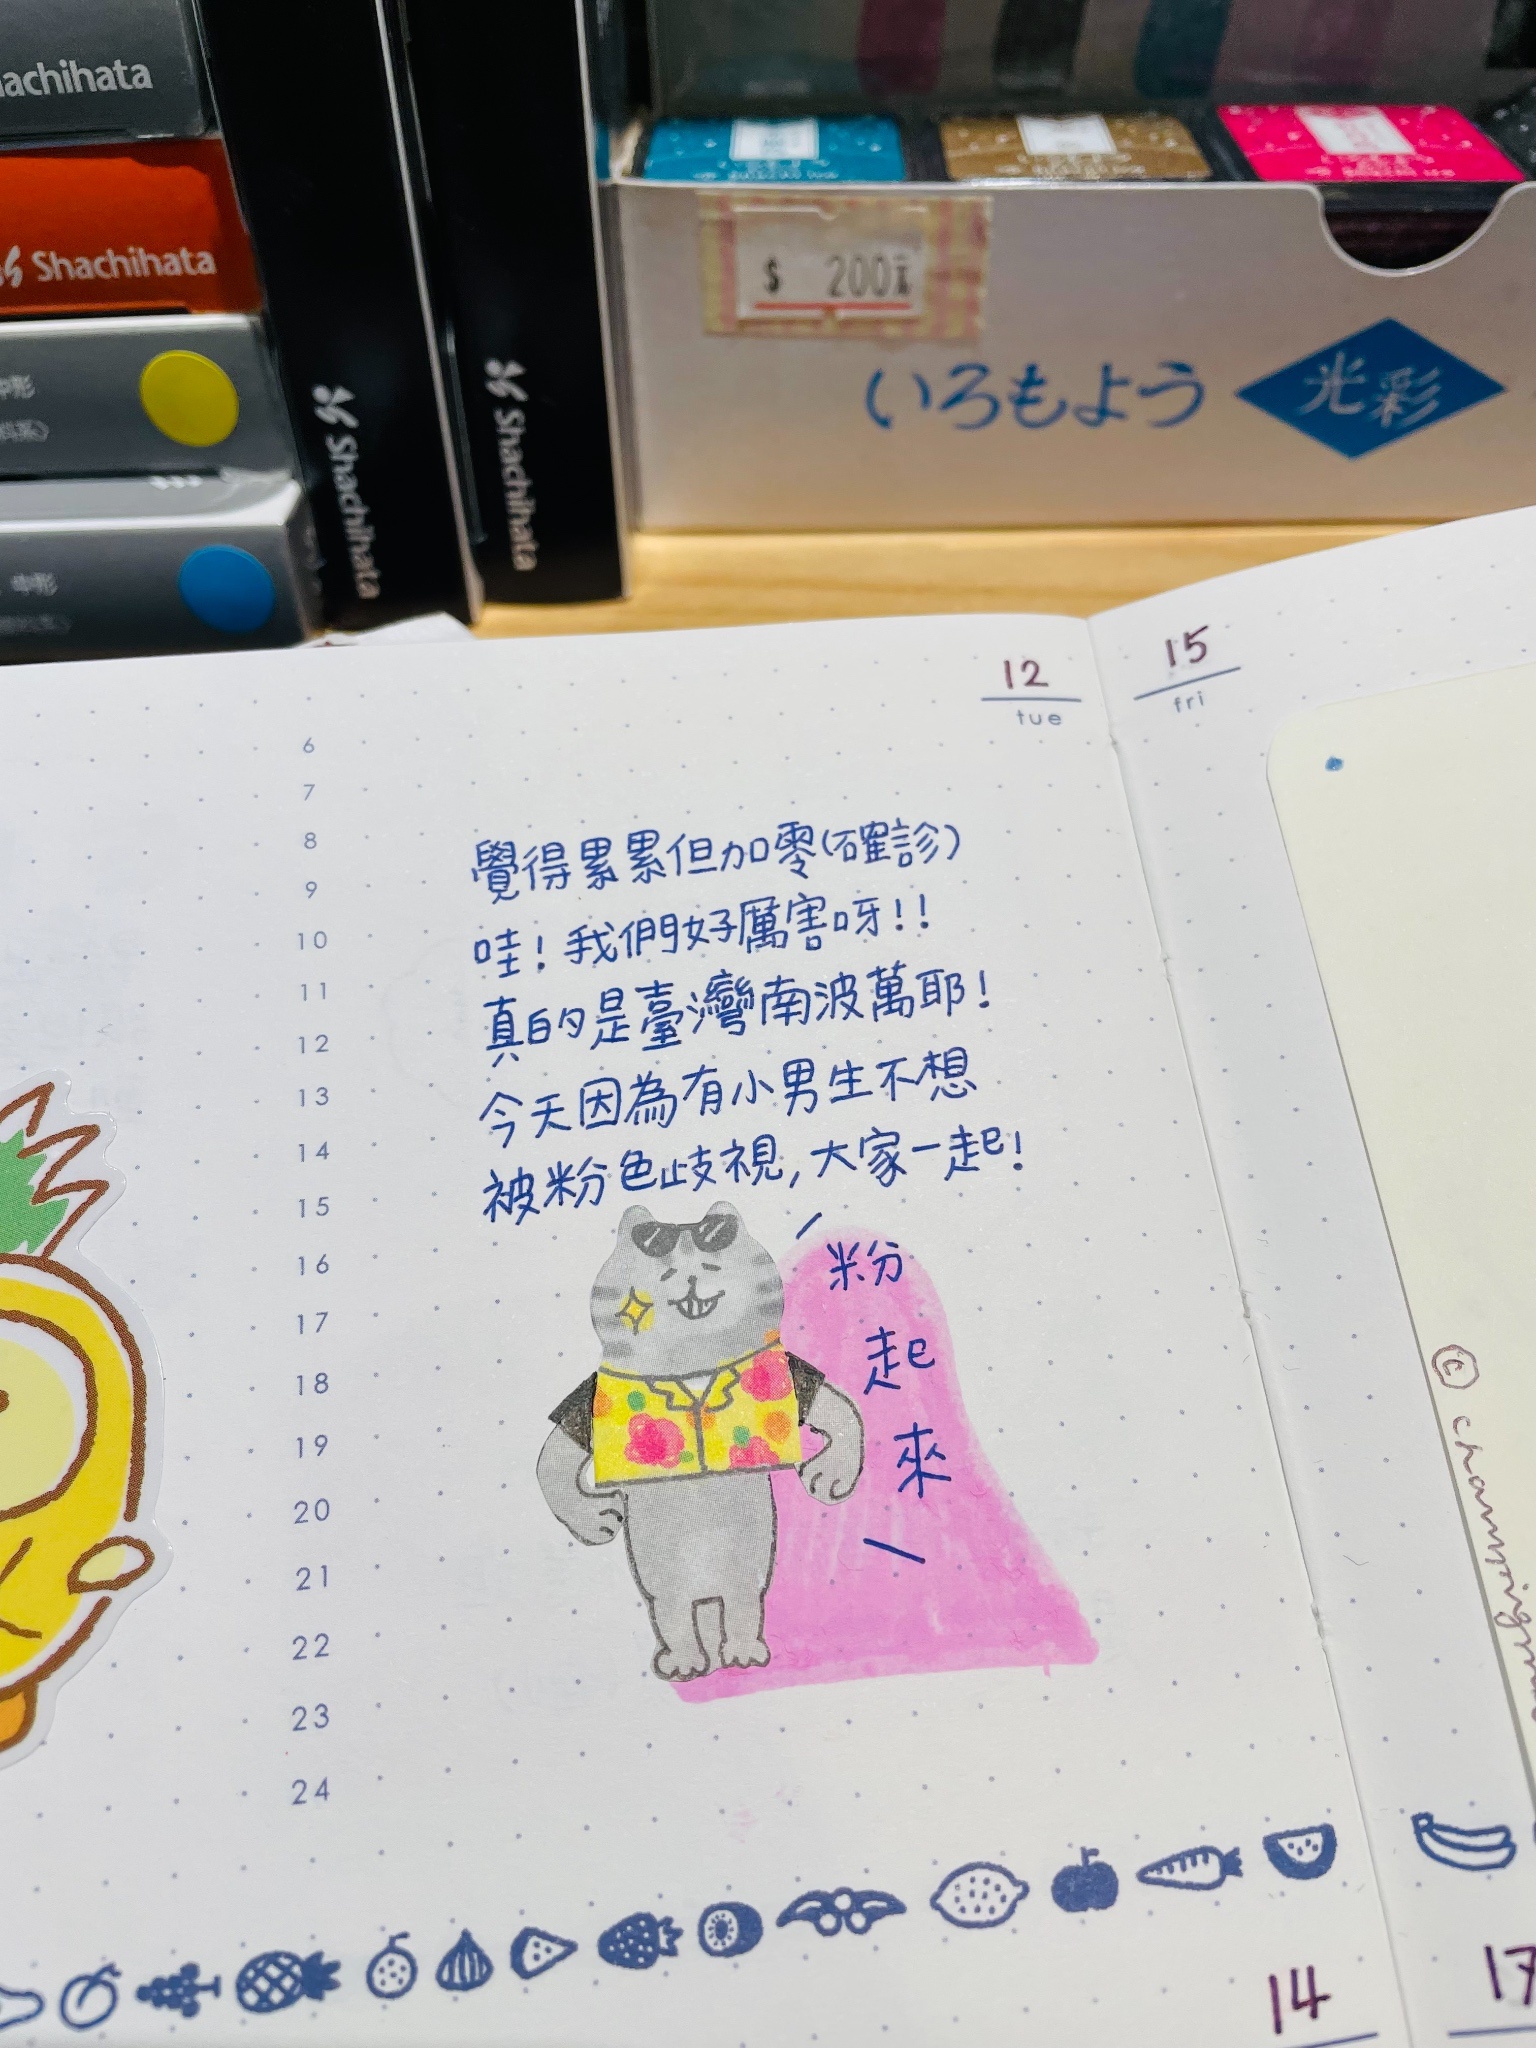 achihata
Shachihata
中形
中形
Shachihata
Shachihata
$ 200元
いろもよう 光彩
12
tue
15
fri
6
7
8
9
10
11
12
13
14
15
16
17
18
19
20
21
22
23
24
覺得累累但加零(確診)
哇!我們好厲害呀!!
真的是臺灣南波萬耶!
今天因為有小男生不想
被粉色歧視,大家一起!
粉
起
來
©
14
17